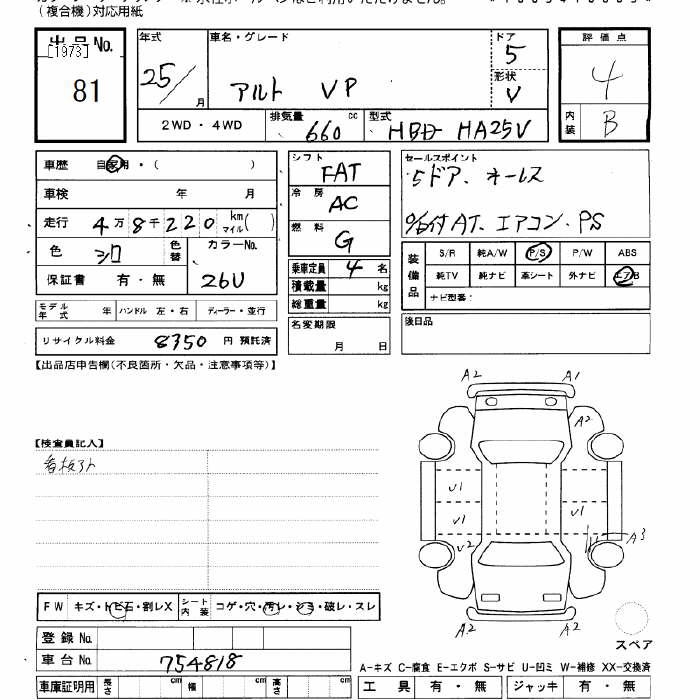 (複合機)対応用紙
出品No.
[1973]
81
年式
25/
月
車名・グレード
アルト VP
ドア
5
形状
V
評価点
4
内装
B
2WD・4WD
排気量
660
cc
型式
HBD HA25V
車歴 自家用・( )
車検 年 月
走行 4万8千220 km マイル( )
色 シロ
色替
カラーNo.
26U
保証書 有・無
モデル年式 年
ハンドル 左・右
ディーラー・並行
リサイクル料金 8350 円 預託済
シフト
FAT
冷房
AC
燃料
G
乗車定員 4 名
積載量 kg
総重量 kg
名変期限
月 日
セールスポイント
5ドア、キーレス
AT、エアコン、PS
装備品
S/R 純A/W P/S P/W ABS
純TV 純ナビ 革シート 外ナビ エアB
ナビ型番:
後日品
【出品店申告欄(不良箇所・欠品・注意事項等)】
【検査員記入】
看板アト
A2 A1
A2
U1
U1
U2
A3
A2 A2
スペア
FW キズ・トビ石・割レX
シート内装 コゲ・穴・汚レ・シミ・破レ・スレ
登録No.
車台No. 754818
車庫証明用 長さ cm 幅 cm 高さ cm
A-キズ C-腐食 E-エクボ S-サビ U-凹ミ W-補修 XX-交換済
工具 有・無 ジャッキ 有・無